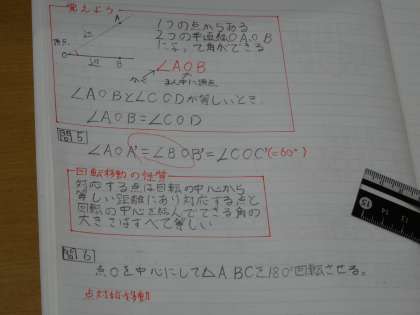 覚えよう
A
頂点
O
辺
辺
B
1つの点からある
2つの半直線OA,OB
によって角ができる
∠AOB
まん中に頂点
∠AOBと∠CODが等しいとき、
∠AOB=∠COD
問5
∠AOA'=∠BOB'=∠COC'(=60°)
回転移動の性質
対応する点は回転の中心から
等しい距離にあり対応する点と
回転の中心を結んでできる角の
大きさはすべて等しい
問6
点Oを中心にして△ABCを180°回転させる。
点対称移動
15